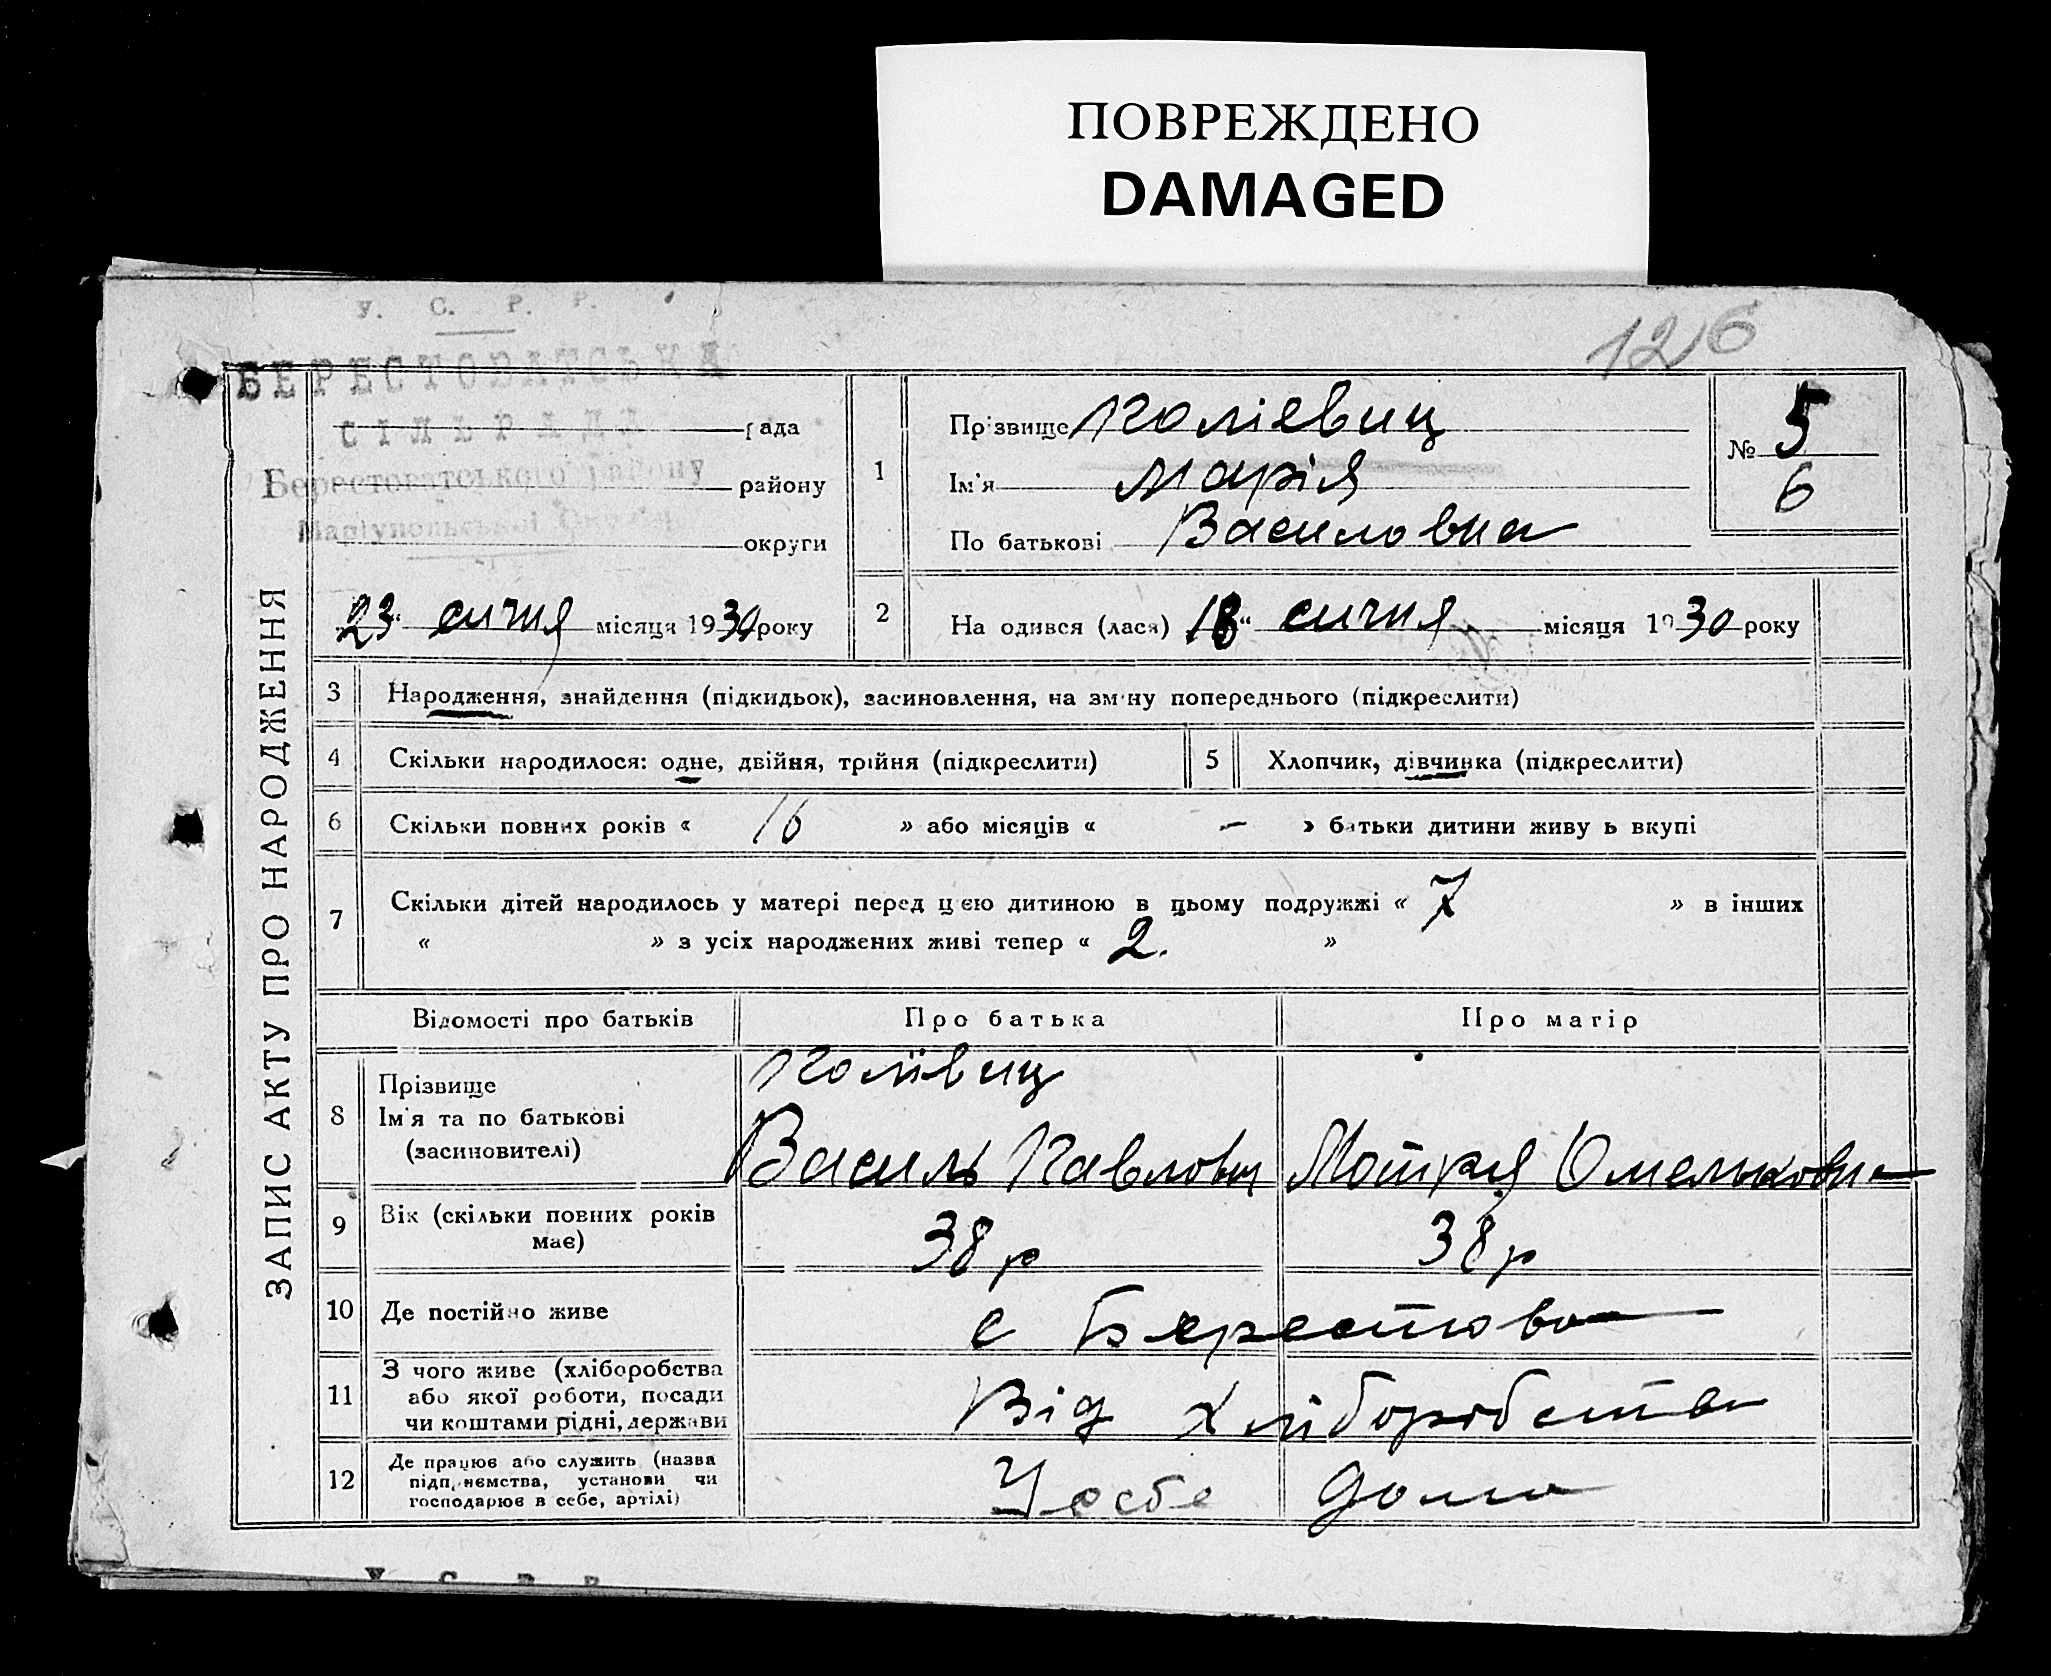 ПОВРЕЖДЕНО
DAMAGED
У. С. Р. Р.
126
БЕРЕСТОВАТСЬКА
СІЛЬРАДА рада
Берестоватського району району
Маріупольської Округи округи
ЗАПИС АКТУ ПРО НАРОДЖЕННЯ
23 січня місяця 1930 року
1
Прізвище
Ім'я Марія
По батькові Василовна
№ 5
6
2 На одився (лася) січня місяця 1930 року
3 Народження, знайдення (підкидьок), засиновлення, на зміну попереднього (підкреслити)
4 Скільки народилося: одне, двійня, трійня (підкреслити) 5 Хлопчик, дівчинка (підкреслити)
6 Скільки повних років « 16 » або місяців « — » батьки дитини живу ь вкупі
7 Скільки дітей народилось у матері перед цією дитиною в цьому подружжі « 7 » в інших
« » з усіх народжених живі тепер « 2. »
Відомості про батьків Про батька Про матір
8 Прізвище
Ім'я та по батькові
(засиновителі) Василь Павлович Мотря Омельковна
9 Вік (скільки повних років
має) 38 р 38 р
10 Де постійно живе с Берестова
11 З чого живе (хліборобства
або якої роботи, посади
чи коштами рідні, держави Від хліборобства
12 Де працює або служить (назва
підприємства, установи чи
господарює в себе, артілі) У себе дома
У С Р Р